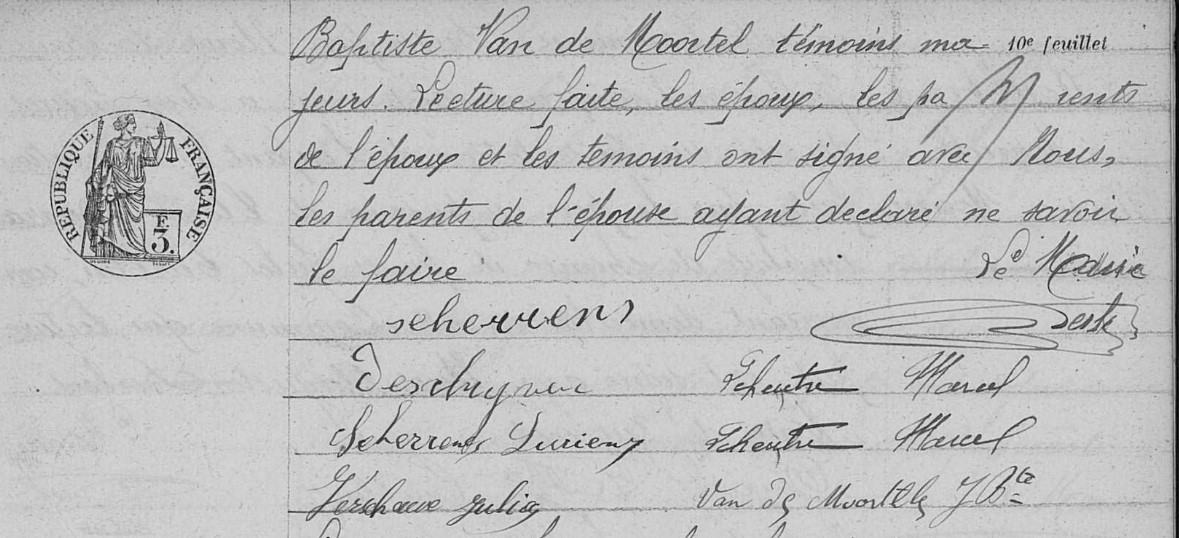 Baptiste Van de Moortel témoins ma 10e feuillet
jeurs. Lecture faite, les époux, les pa rents
de l'époux et les temoins ont signé avec Nous,
les parents de l'épouse ayant declaré ne savoir
le faire Le Maire
RÉPUBLIQUE FRANÇAISE
F
3.
scherrens
Marcel
Scherrens Lucien Marcel
Julia Van de Moortele J Bte